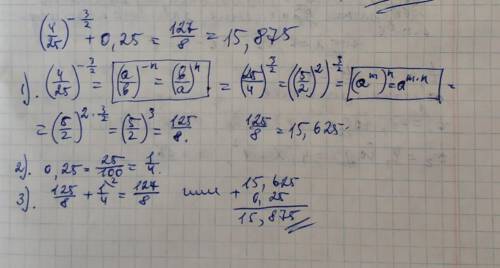 (4/25)^(-3/2) + 0,25 = 127/8 = 15,875
1). (4/25)^(-3/2) = (a/b)^(-n) = (b/a)^n = (25/4)^(3/2) = ((5/2)^2)^(3/2) = (a^m)^n = a^(m·n) =
= (5/2)^(2·3/2) = (5/2)^3 = 125/8. 125/8 = 15,625.
2). 0,25 = 25/100 = 1/4.
3). 125/8 + 1/4^2 = 127/8 или + 15,625
0,25
15,875